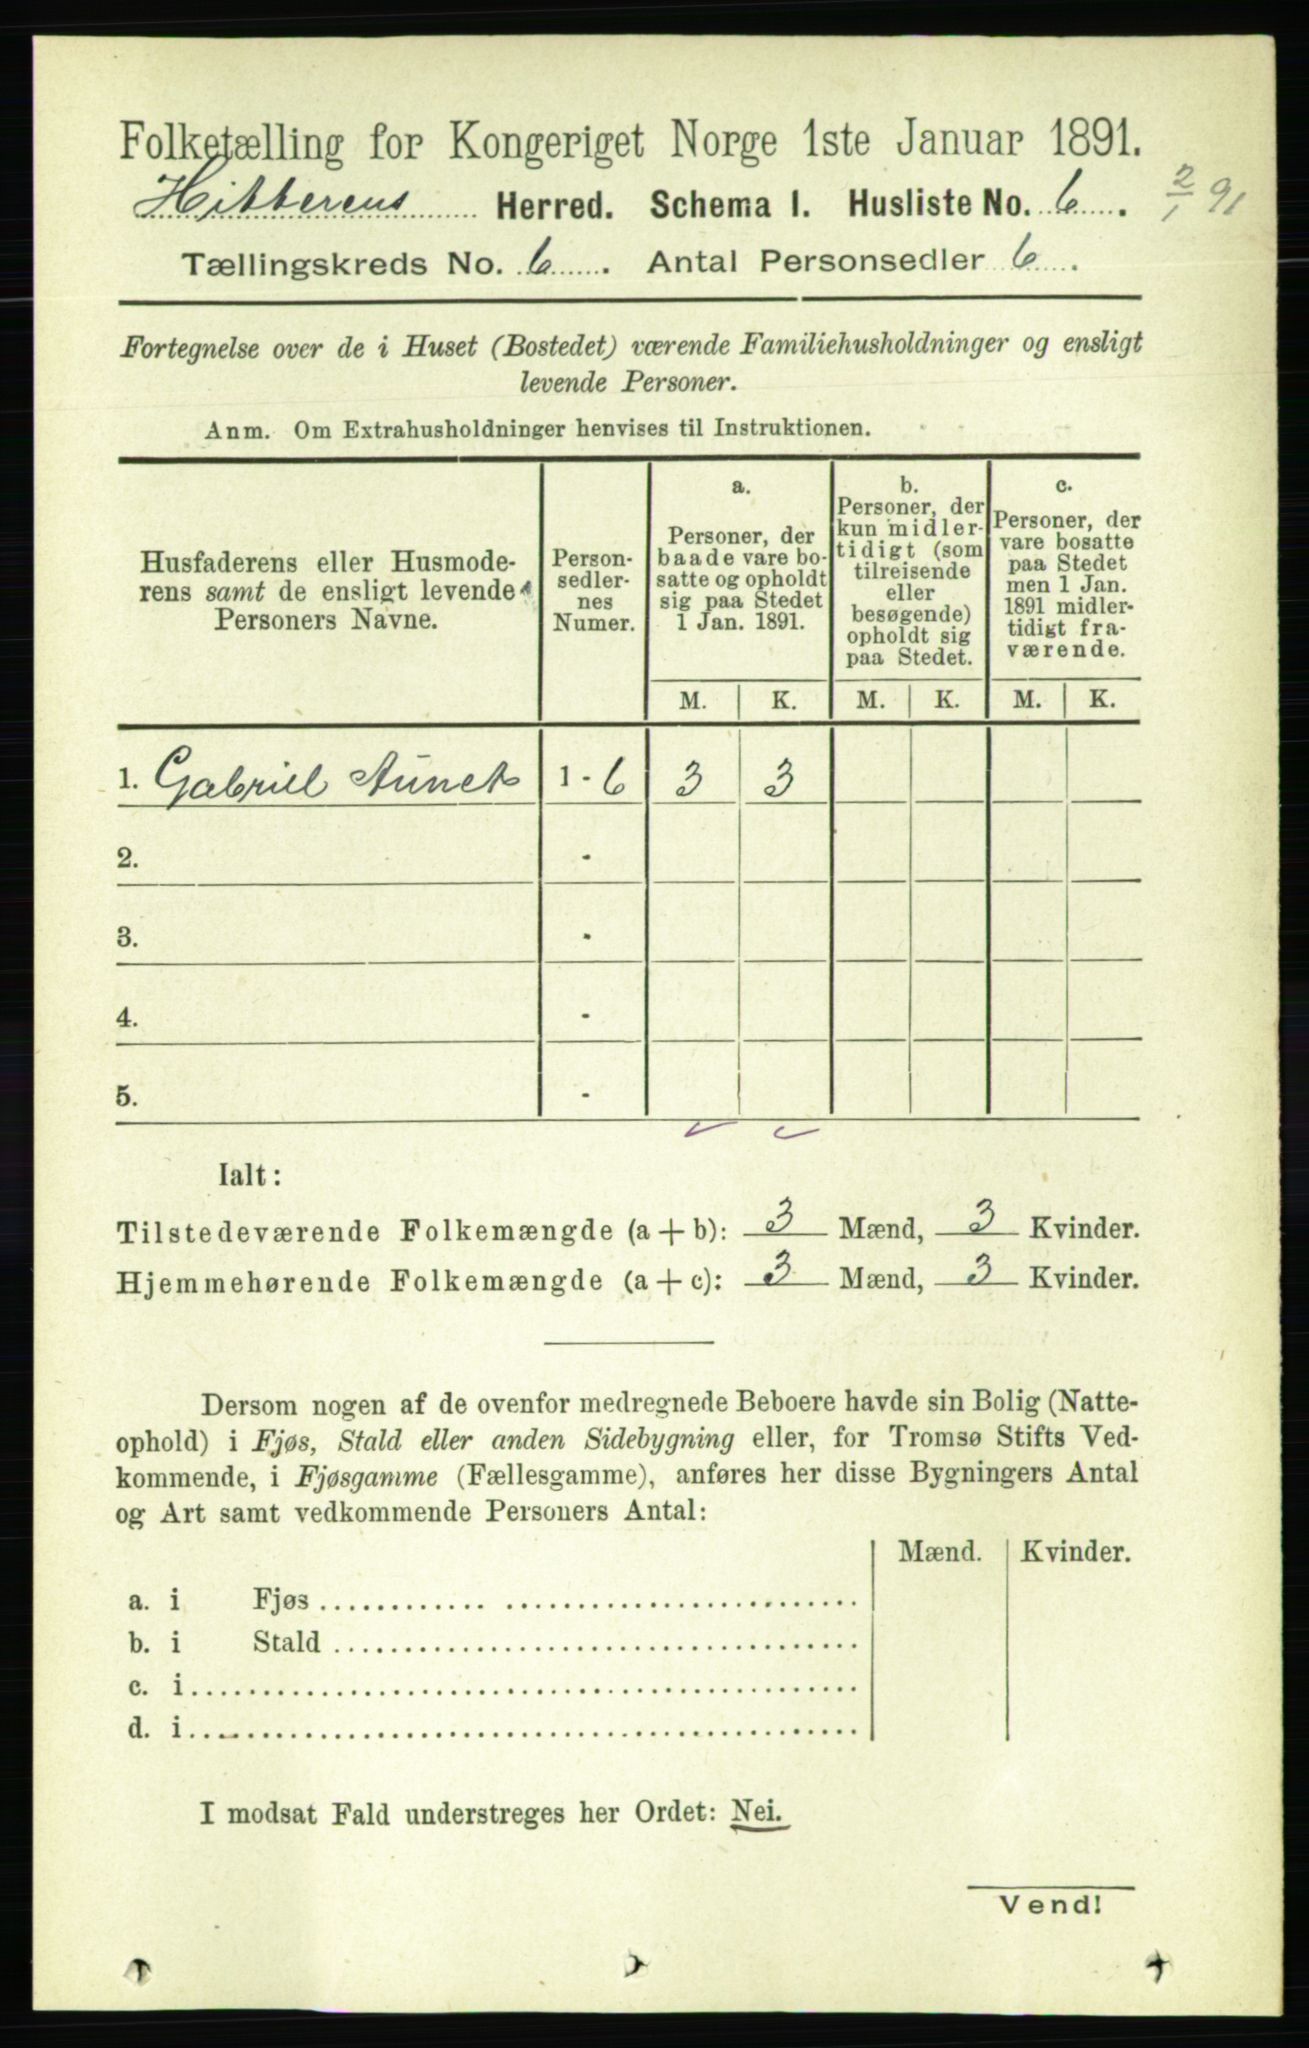 Folketælling for Kongeriget Norge 1ste Januar 1891.
Hitterens Herred. Schema 1. Husliste No. 6. 2/1 91
Tællingskreds No. 6. Antal Personsedler 6.
Fortegnelse over de i Huset (Bostedet) værende Familiehusholdninger og ensligt
levende Personer.
Anm. Om Extrahusholdninger henvises til Instruktionen.
Husfaderens eller Husmode-
rens samt de ensligt levende
Personers Navne.
Person-
sedler-
nes
Numer.
a.
Personer, der
baade vare bo-
satte og opholdt
sig paa Stedet
1 Jan. 1891.
b.
Personer, der
kun midler-
tidigt (som
tilreisende
eller
besøgende)
opholdt sig
paa Stedet.
c.
Personer, der
vare bosatte
paa Stedet
men 1 Jan.
1891 midler-
tidigt fra-
værende.
M. K. M. K. M. K.
1. Gabriel Aunet 1 - 6 3 3
2. -
3. -
4. -
5. -
Ialt:
Tilstedeværende Folkemængde (a + b): 3 Mænd, 3 Kvinder.
Hjemmehørende Folkemængde (a + c): 3 Mænd, 3 Kvinder.
Dersom nogen af de ovenfor medregnede Beboere havde sin Bolig (Natte-
ophold) i Fjøs, Stald eller anden Sidebygning eller, for Tromsø Stifts Ved-
kommende, i Fjøsgamme (Fællesgamme), anføres her disse Bygningers Antal
og Art samt vedkommende Personers Antal:
Mænd. Kvinder.
a. i Fjøs
b. i Stald
c. i
d. i
I modsat Fald understreges her Ordet: Nei.
Vend!